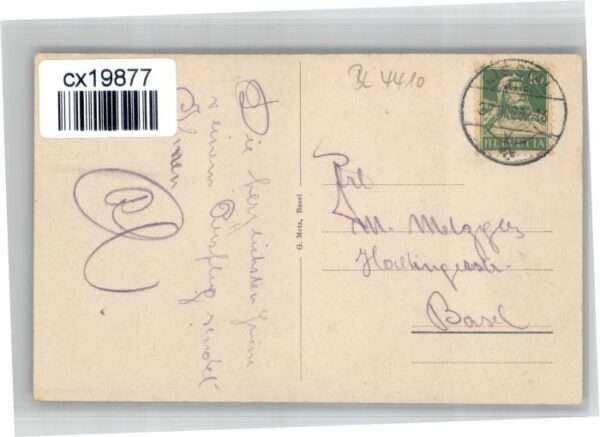 cx19877
BL 4410
10
HELVETIA
Die herzlichsten Grüsse
v einem Ausflug sendet
Ihnen
G. Metz, Basel
Frl
M. Metzger
Basel